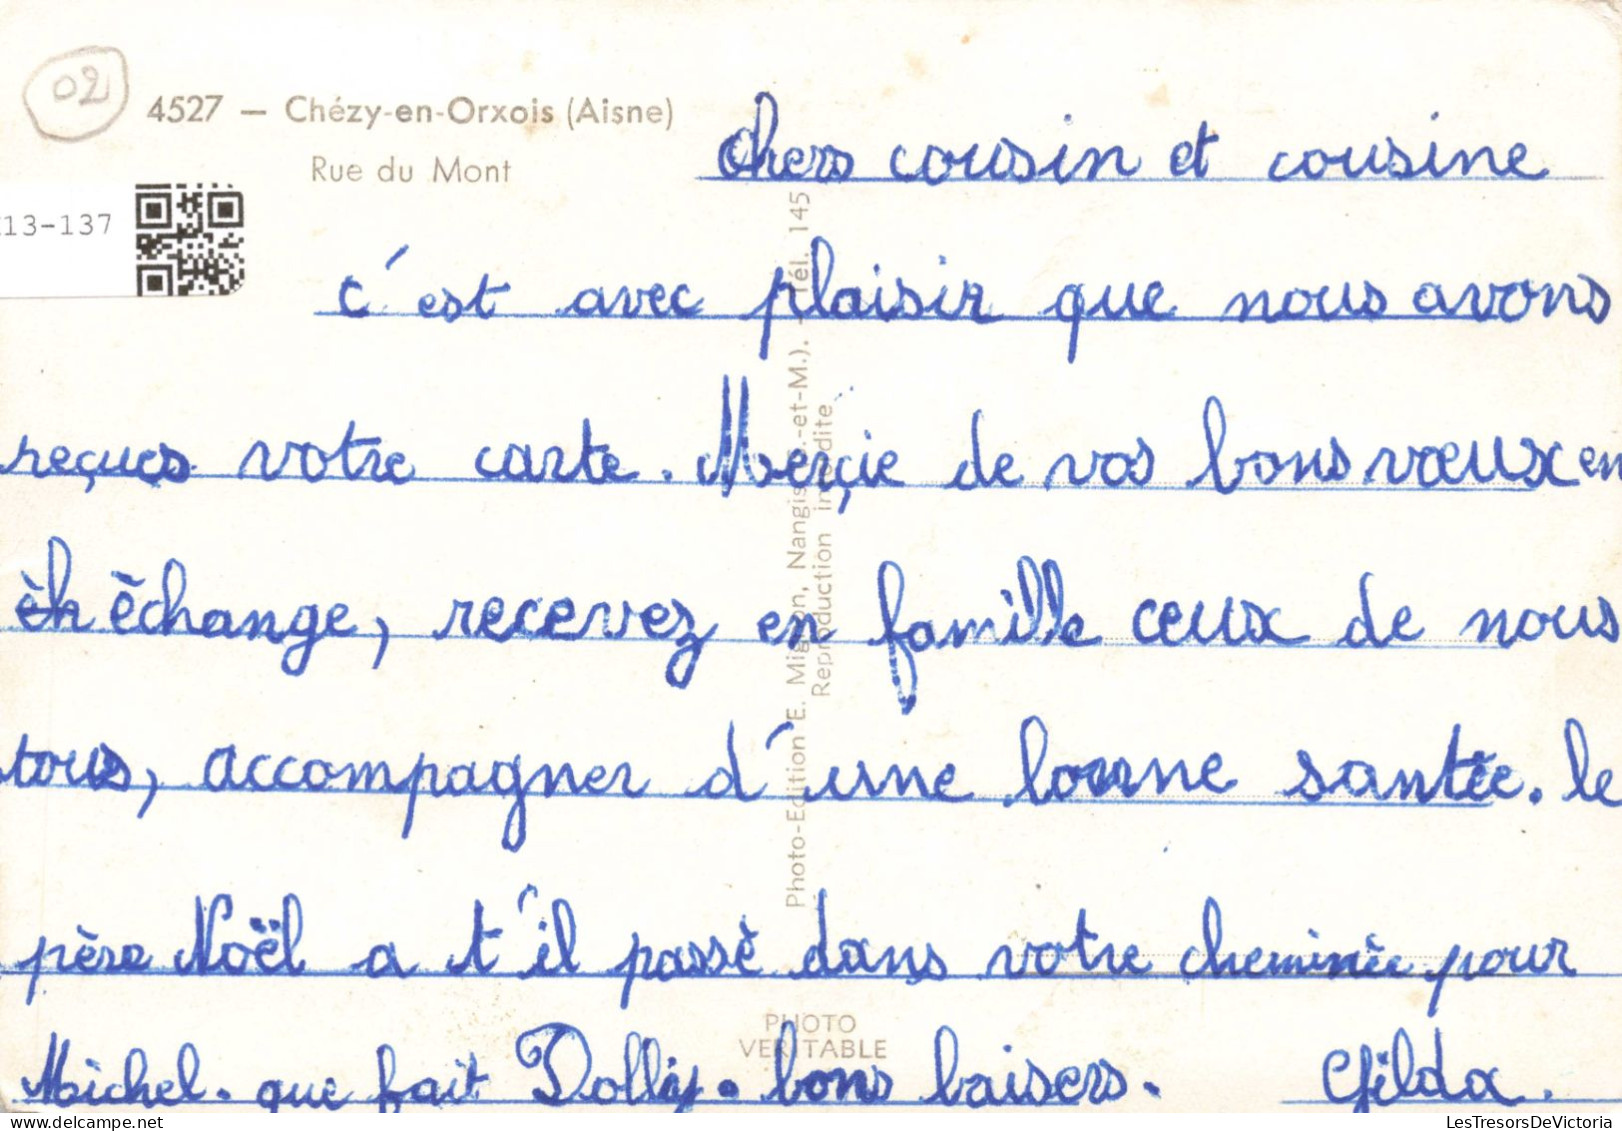 02
4527 — Chézy-en-Orxois (Aisne)
Rue du Mont
13-137
Chers cousin et cousine
c'est avec plaisir que nous avons
reçues votre carte. Merçie de vos bons vœux en
èh èchange, recevez en famille ceux de nous
tous, accompagner d'une bonne santèe. le
père Noël a t'il passè dans votre cheminèe pour
Michel. que fait Dolly. bons baisers. Gilda.
Photo-Edition E. Mignon, Nangis -et-M.). - Tél. 145
Reproduction interdite
PHOTO
VERITABLE
LesTresorsDeVictoria